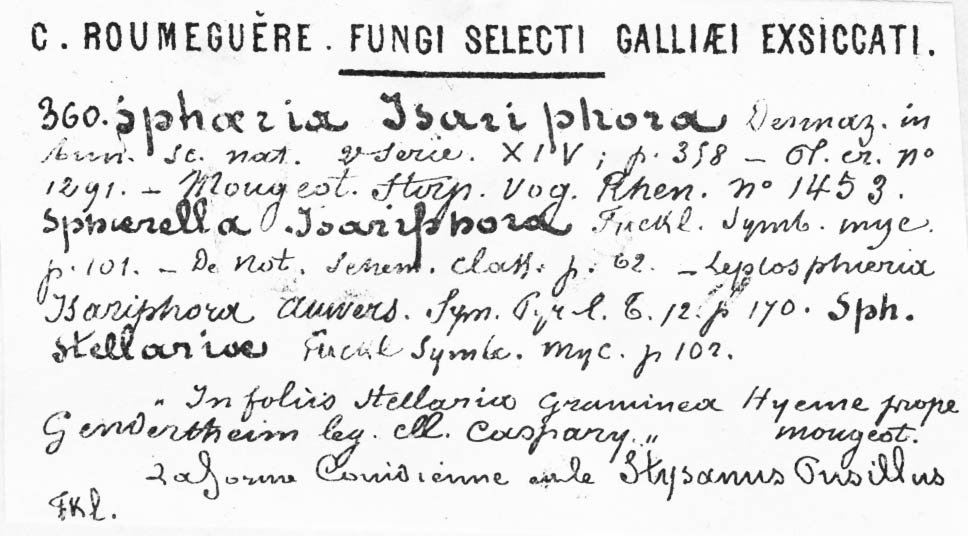 C. ROUMEGUĔRE. FUNGI SELECTI GALLIÆI EXSICCATI.
360. Sphæria Isariphora Desmaz. in
Ann. Sc. nat. 2e Serie. XIV; p. 358 — Pl. cr. no
1291. — Mougeot. Stirp. Vog. Rhen. no 1453.
Sphærella Isariphora Fuckl. Symb. myc.
p. 101. — De Not. Schem. class. p. 62. — Leptosphæria
Isariphora Auwers. Syn. Pyr. p 170. Sph.
Stellariæ Fuckl Symb. Myc. p 102.
„ In foliis Stellaria Graminea Hyeme prope
Gendertheim leg. cll. Caspary „ mougeot.
La forme Conidienne est le Stysanus Pusillus
FKl.